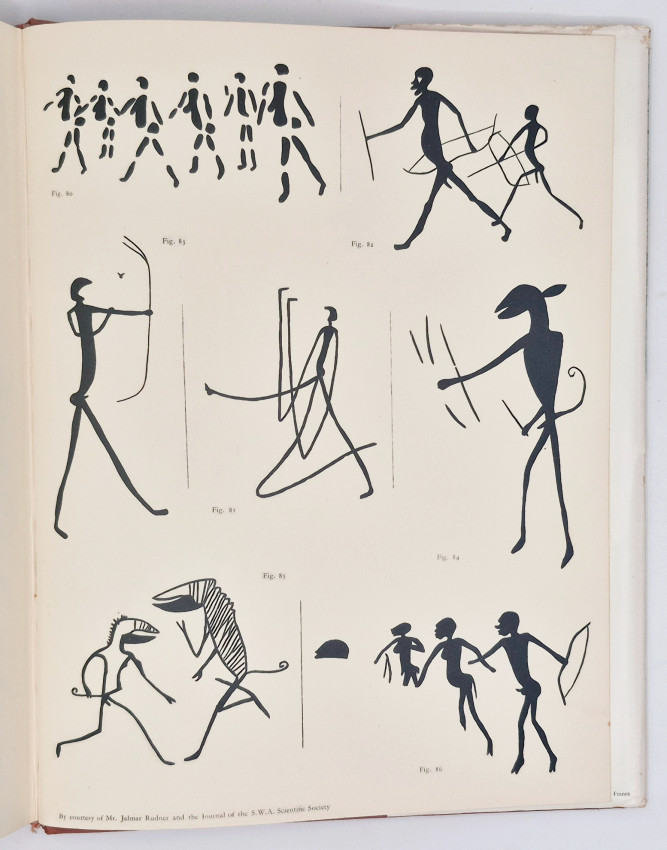 Fig. 80
Fig. 83
Fig. 82
Fig. 81
Fig. 84
Fig. 85
Fig. 86
By courtesy of Mr. Jalmar Rudner and the Journal of the S.W.A. Scientific Society
Frames